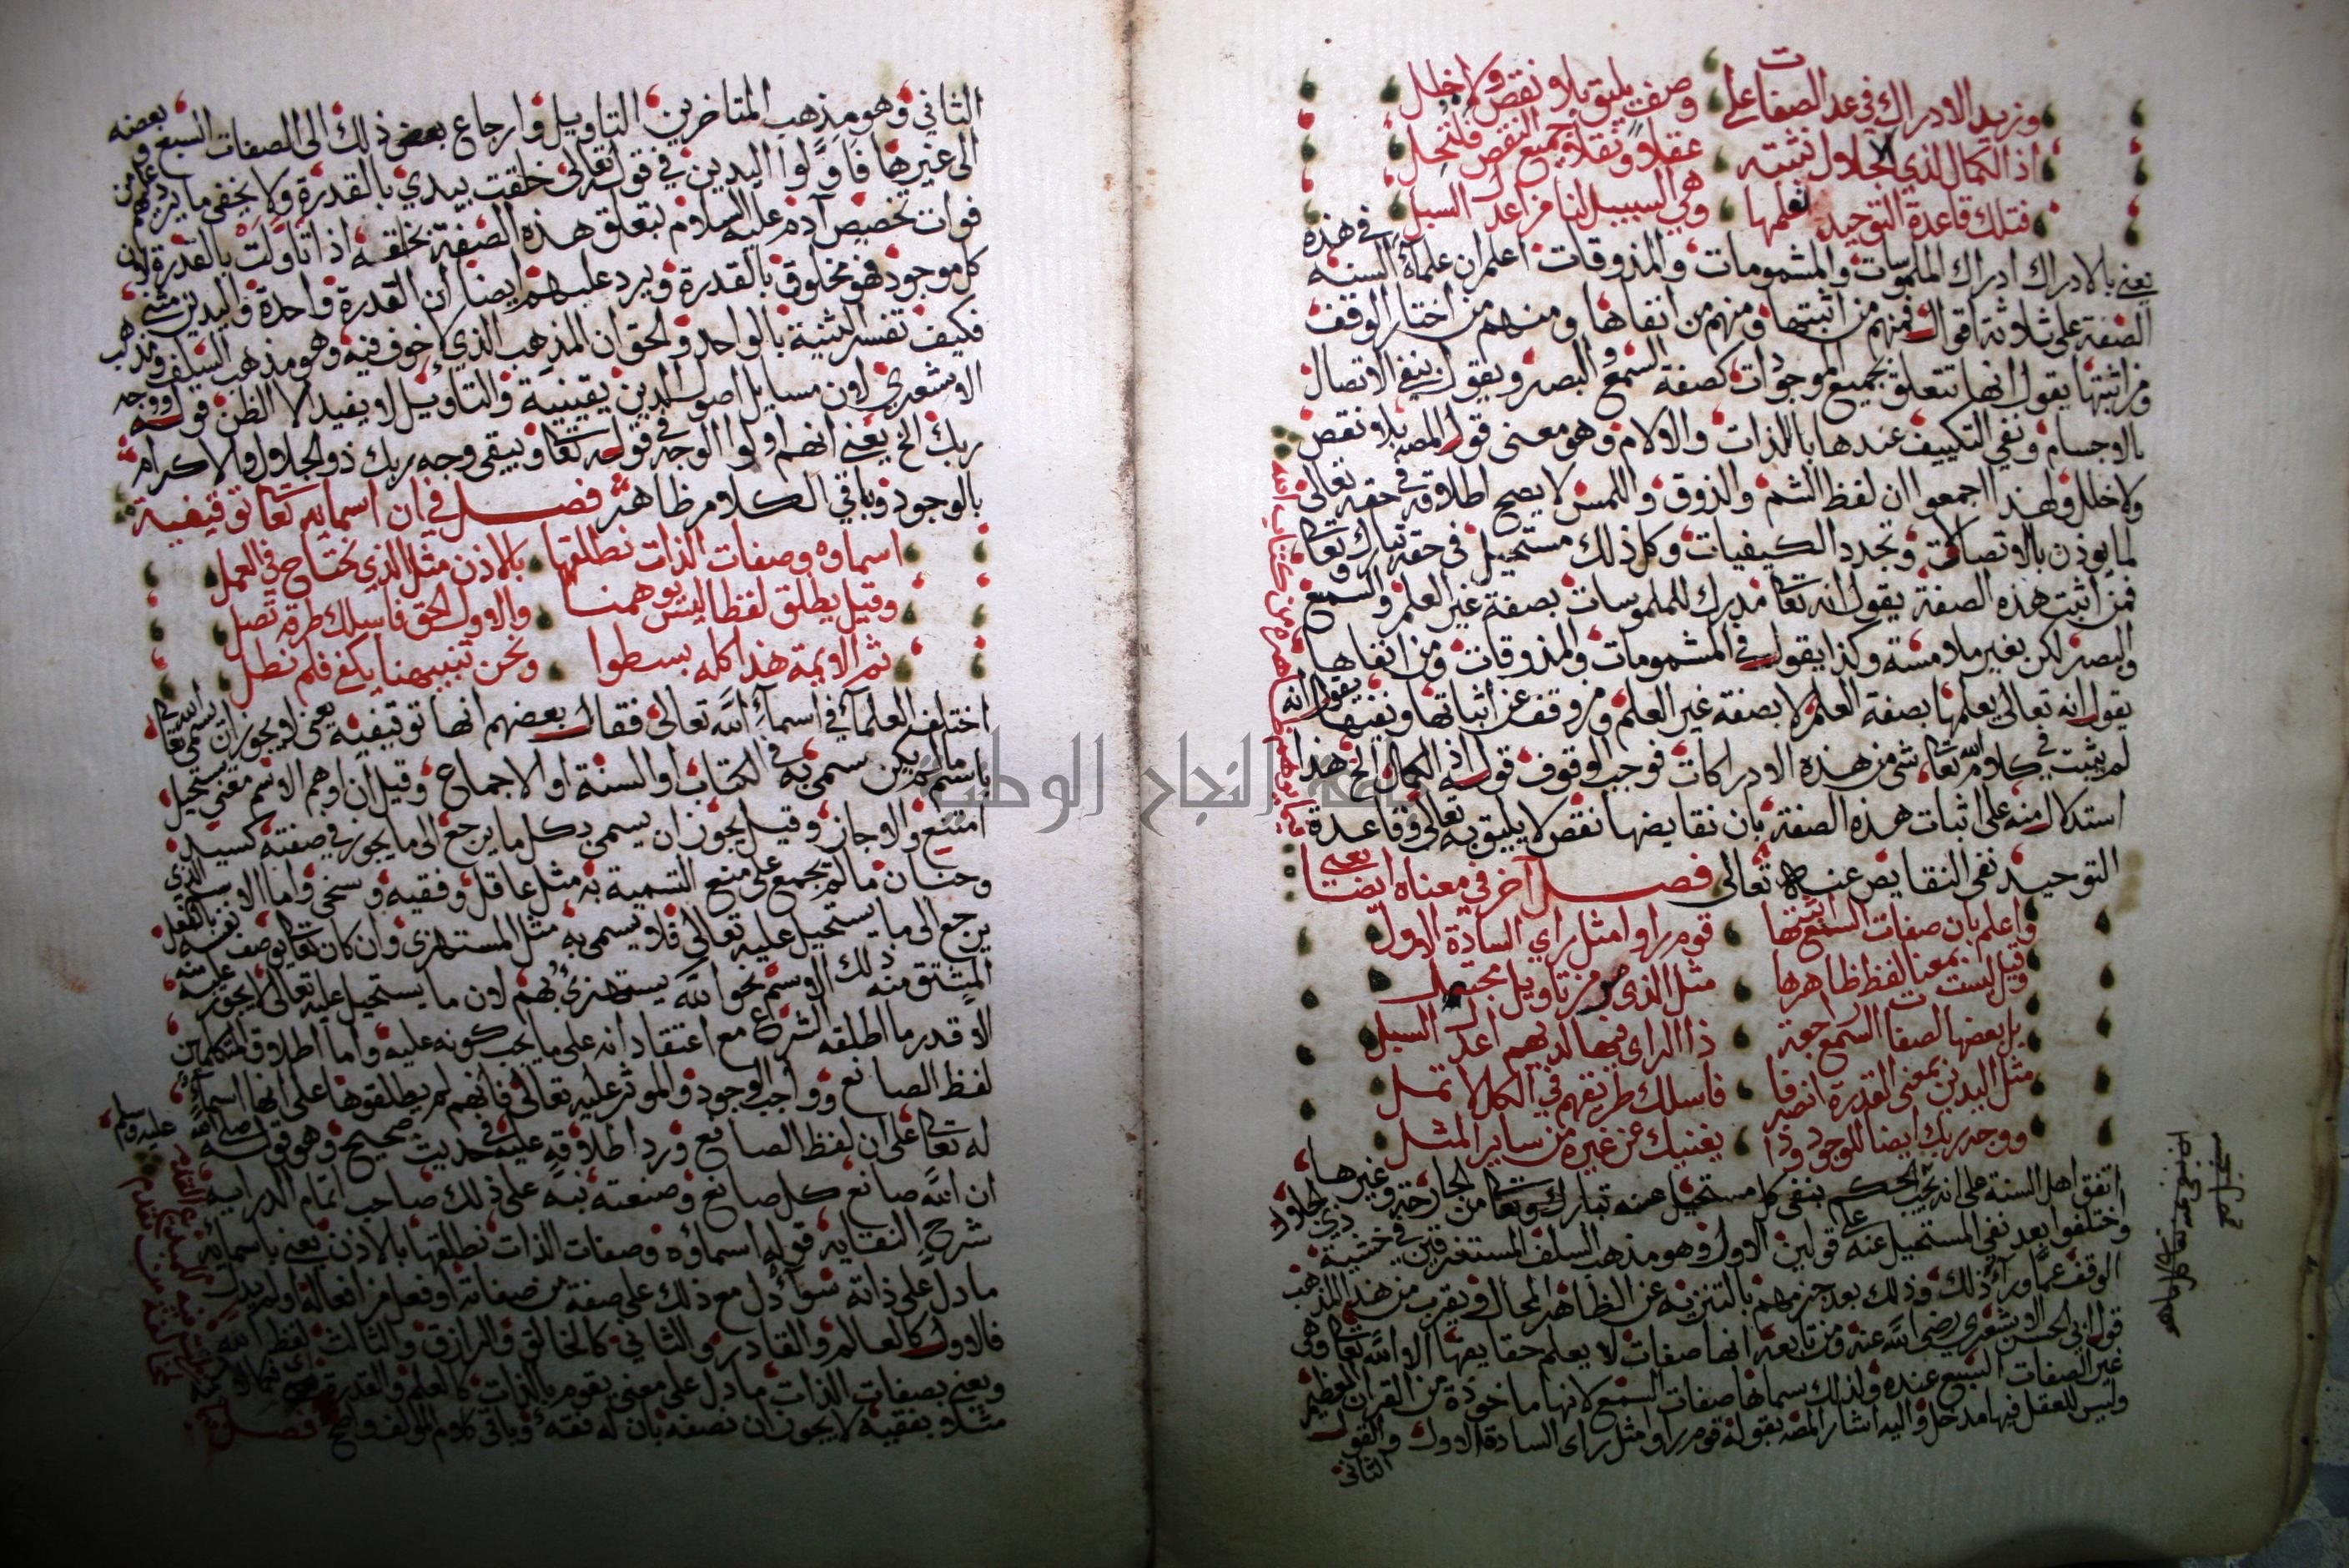 وزيد الادراك في عد الصفات على وصف يليق بلا نقص ولا خلل
اذ الكمال لذي الجلال نثبته عقلا ونقلا وجميع النقص فلنحل
فتلك قاعدة التوحيد نعلمها وهي السبيل لنا من اعدل السبل
يعني بالادراك ادراك الملموسات والمشمومات والمذوقات اعلم ان علماء السنة في هذه
الصفة على ثلاثة اقوال فمنهم من اثبتها ومنهم من انفاها ومنهم من اختار الوقف
ومن اثبتها يقول انها تتعلق بجميع الموجودات كصفة السمع والبصر ويقول بنفي الاتصال
بالاجسام ونفي التكييف عندها باللذات والالام وهو معنى قول المصه بلا نقص
ولا خلل ولهذا اجمعوا ان لفظ الشم والذوق واللمس لا يصح اطلاقه في حقه تعالى
لما يوذن بالاتصالات وتجدد الكيفيات وكل ذلك مستحيل في حقه تبارك وتعا
فمن اثبت هذه الصفة يقول انه تعا مدرك للملموسات بصفة غير العلم والسمع
والبصر لكن بغير ملامسة وكذا يقول في المشمومات والمذوقات ومن انفاها
يقول انه تعالى يعلمها بصفة العلم لا بصفة غير العلم ومن وقف عن اثباتها ونفيها يقول انه
لم يثبت في كلام الله تعا شي من هذه الادراكات فوجب الوقوف قوله اذ الكمال الخ هذا
استدلال منه على اثبات هذه الصفة بان نقايضها نقص لا يليق به تعالى وقاعدة
التوحيد نفي النقايص عنه تعالى فصل اخر في معناه ايضا يعني
واعلم بان صفات السمع اثبتها قوم راوا مثل راي السادة الاول
وقيل ليست بمعنا لفظ ظاهرها مثل الذي من تاويل محتمل
بل بعضها لصفات السمع راجعة ذا الراي فيها لديهم اعدل السبل
مثل اليدين بمعنى القدرة انصرفا فاسلك طريقهم في الكل لا تمل
ووجه ربك ايضا للوجود وذا يغنيك عن غيره من ساير المثل
اتفق اهل السنة على انه يجب الحكم بنفي كل مستحيل عنه تبارك وتعا من الجارحة وغيرها
واختلفوا بعد نفي المستحيل عنه على قولين الاول وهو مذهب السلف المستغرقين في خشية ذي الجلال
الوقف عما وراء ذلك وذلك بعد جزمهم بالتنزيه عن الظاهر المحال ويقرب من هذا المذهب
قول ابي الحسن الاشعري رضي الله عنه ومن تابعه انها صفات لا يعلم حقايقها الا الله تعا وهي
غير الصفات السبع عنده ولذلك سماها صفات السمع لانها ماخوذة من القران العظيم
وليس للعقل فيها مدخل واليه اشار المصه بقوله قوم راوا مثل راي السادة الاول والقول
الثاني
الثاني وهو مذهب المتاخرين التاويل وارجاع بعض ذلك الى الصفات السبع وبعضه
الى غيرها فاولوا اليدين في قوله تعالى خلقت بيدي بالقدرة ولا يخفى ما يرد عليهم من
فوات تخصيص آدم عليه السلام بتعلق هذه الصفة بخلقه اذا تاولت بالقدرة لان
كل موجود فهو مخلوق بالقدرة ويرد عليهم ايضا ان القدرة واحدة واليدين مثنى
فكيف تفسر التثنية بالواحد والحق ان المذهب الذي لا خوف فيه وهو مذهب السلف ومذهب
الاشعري لان مسايل اصول الدين يقينية والتاويل لا يفيد الا الظن قوله ووجه
ربك الخ يعني انهم اولوا الوجه في قوله تعا ويبقى وجه ربك ذو الجلال والاكرام
بالوجود وباقي الكلام ظاهر فصل في ان اسمايه تعا توقيفية
اسماوه وصفات الذات نطلقها بالاذن مثل الذي نحتاج في العمل
وقيل يطلق لفظا ليس يوهمنا والاول الحق فاسلك طرقه تصل
ثم الايمة هذا كله بسطوا ونحن تنبيهنا يكفي فلم نطل
اختلف العلماء في اسماء الله تعالى فقال بعضهم انها توقيفية يعني لا يجوز ان يسمى الله تعا
باسم ما لم يكن سمي به في الكتاب او السنة او الاجماع وقيل ان اوهم الاسم معنى يستحيل
امتنع والا جاز وقيل يجوز ان يسمى بكل ما يرجع الى ما يجوز في صفته كسيد
وحنان ما لم يجمع على منع التسمية به مثل عاقل وفقيه وسخي واما الاسم الذي
يرجع الى ما يستحيل عليه تعالى فلا يسمى به مثل المستهزئ وان كان تعا يوصف نفسه بالفعل
المشتق منه ذلك الاسم نحو الله يستهزئ بهم لان ما يستحيل عليه تعالى لا يجوز عليه منه
الا قدر ما اطلقه الشرع مع اعتقاد انه على ما يجب كونه عليه واما اطلاق المتكلمين
لفظ الصانع وواجب الوجود والموثر عليه تعالى فانهم لم يطلقوها على انها اسماء
له تعا على ان لفظ الصانع ورد اطلاقه عليه في حديث صحيح وهو قوله صلى الله عليه وسلم
ان الله صانع كل صانع وصنعته نبه على ذلك صاحب اتمام الدراية
شرح النقاية قوله اسماؤه وصفات الذات نطلقها بالاذن يعني باسمايه
ما دل على ذاته سواء دل مع ذلك على صفة من صفاته او فعل من افعاله او لم يدل
فالاول كالعالم والقادر والثاني كالخالق والرازق والثالث لفظ الله
ويعني بصفات الذات ما دل على معنى يقوم بالذات كالعلم والقدرة
مثلا بفقيه لا يجوز ان نصفه بان له فقه وباقي كلام المولف واضح فصل
جامعة النجاح الوطنية